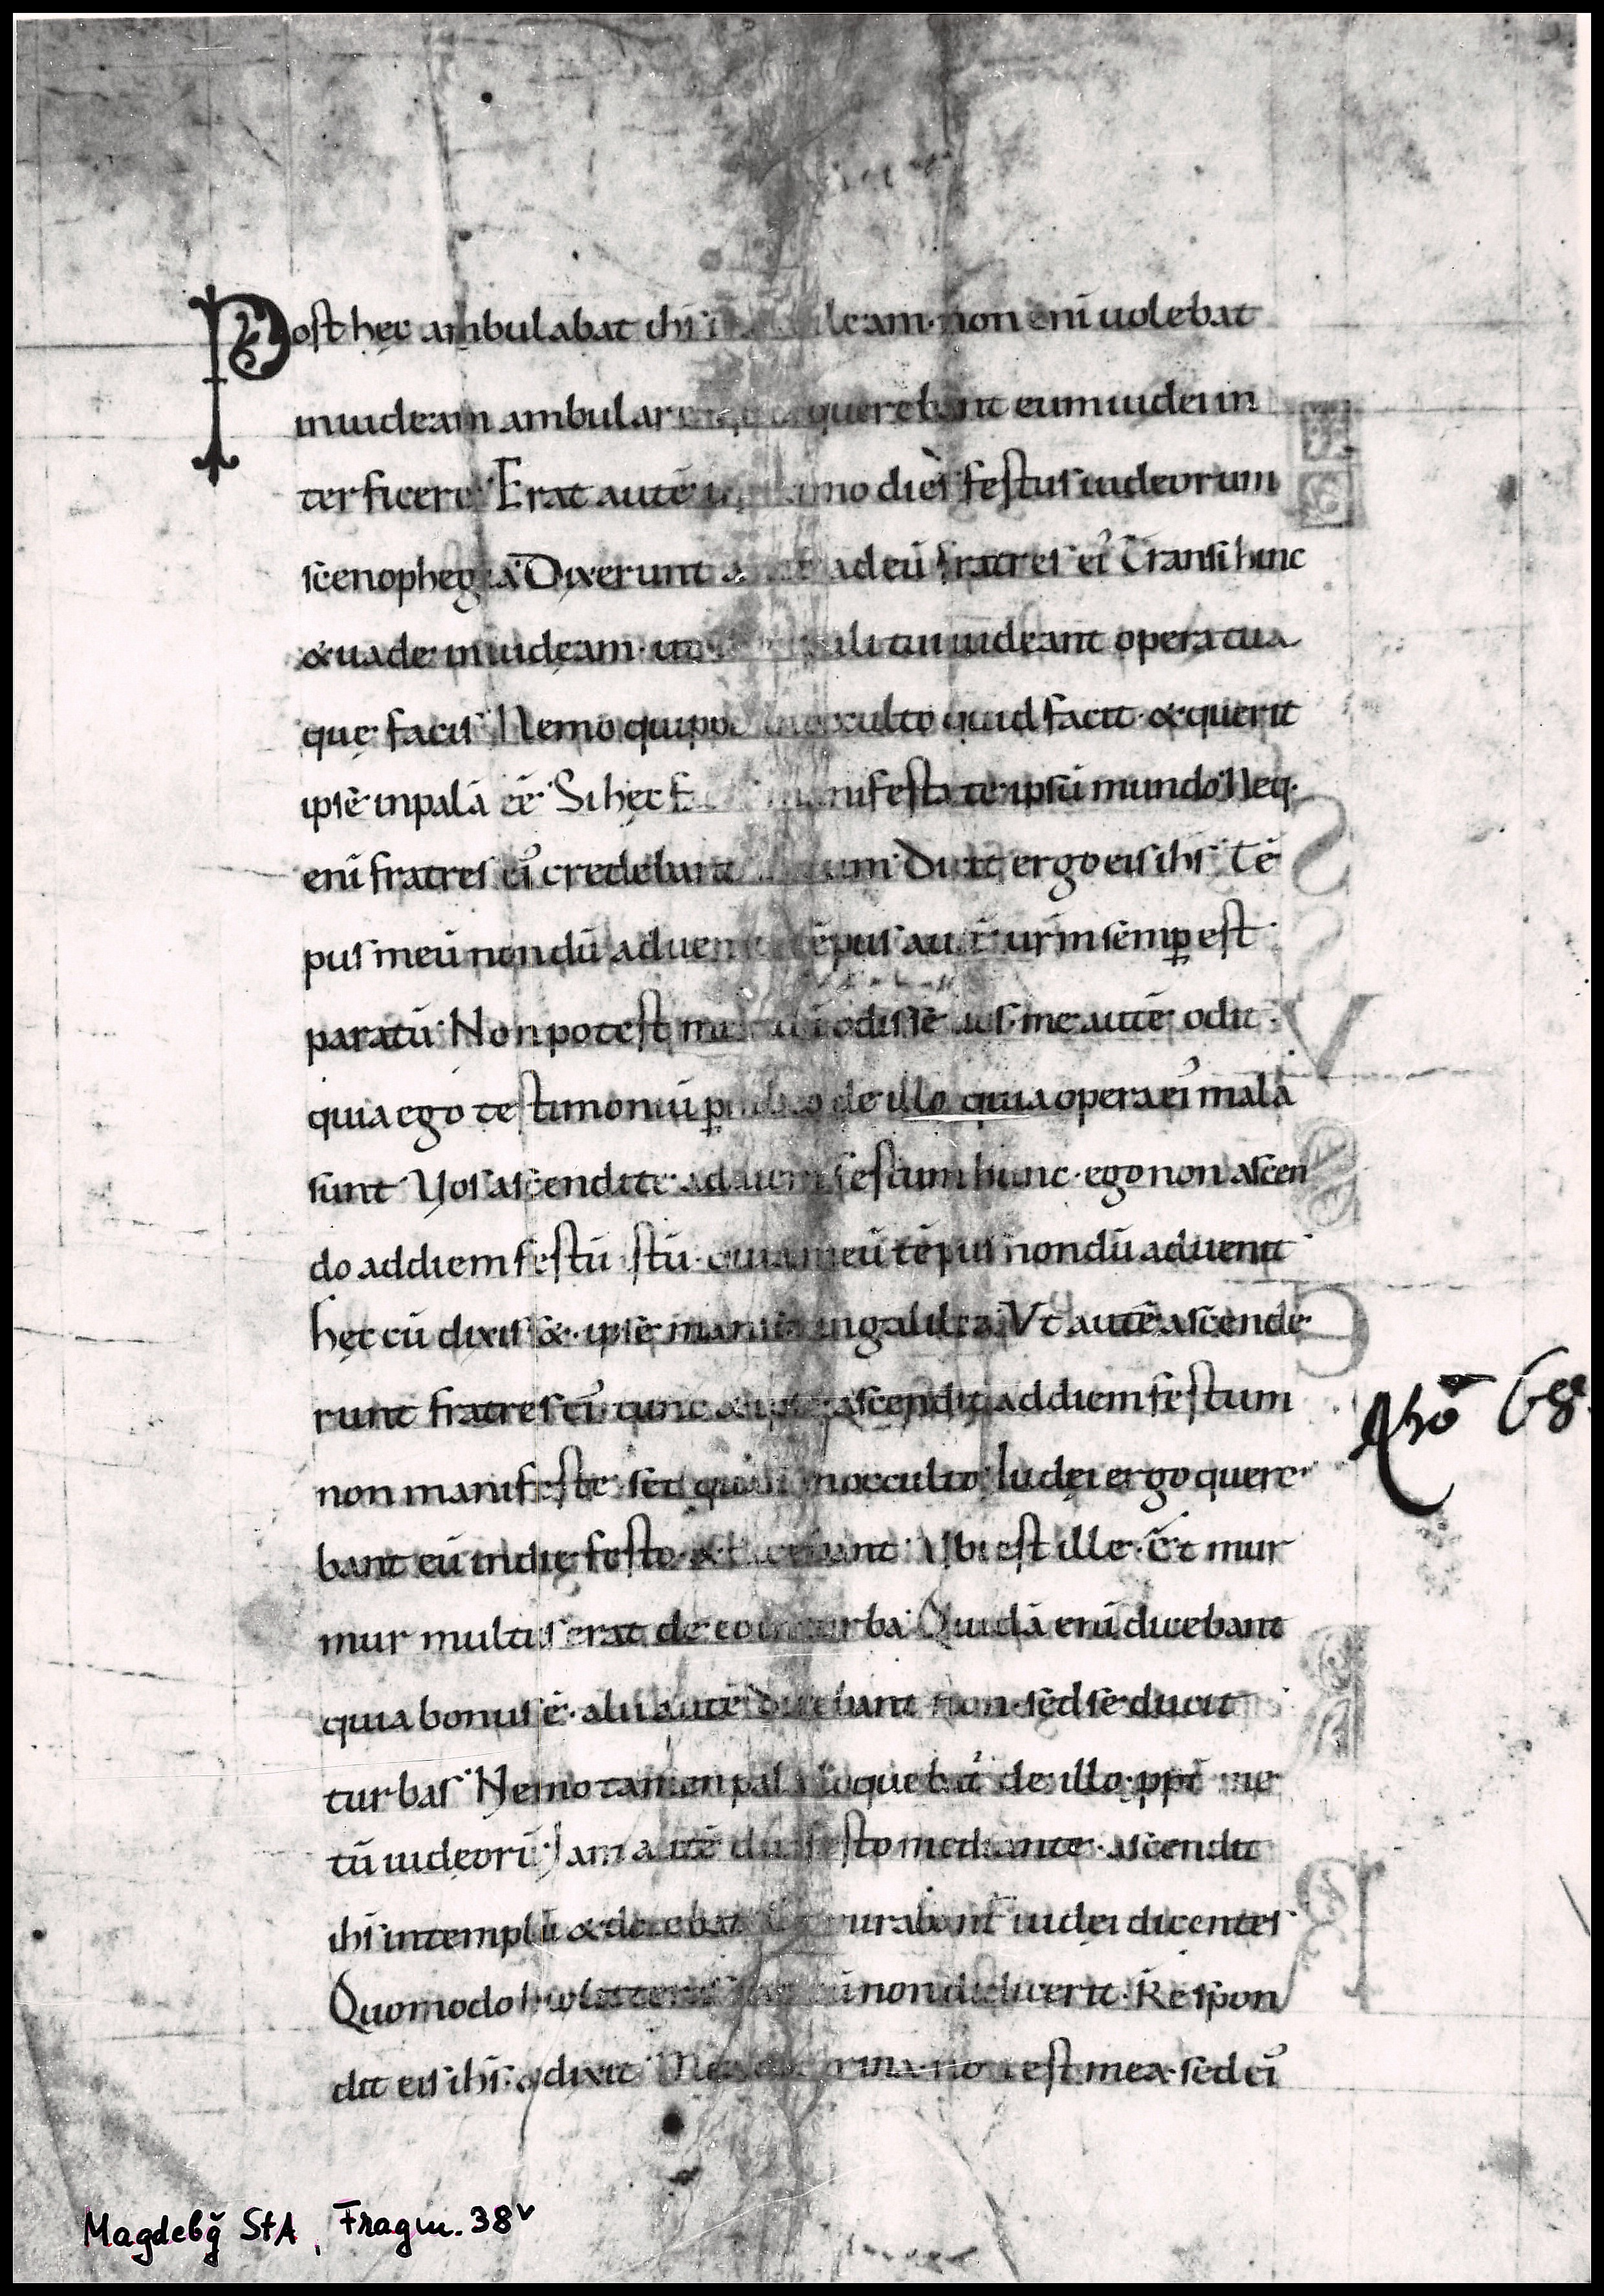 Post hęc ambulabat ihs i leam · non eni uolebat
in iudeam ambulare querebant eum iudei in
terficere · Erat autē imo dies festus iudeorum
scenophegia · Dixerunt ad eū fratres ei᾽ Transi hinc
& uade in iudęam · ut tui uideant opera tua
quę facis · Nemo quippe in occulto quid facit · & querit
ipse inpalā eē · Si hęc manifesta te ipsū mundo · Neq·
eni fratres ei᾽ credebant eum · Dicit ergo eis ihs · Tē
pus meū nondū aduenit tēpus autē ur̄m semp est
paratū · Non potest mundus odisse uos · me autē odit ·
quia ego testimoniū phibeo de illo quia opera ei᾽ mala
sunt · Vos ascendite ad diem festum hunc · ego non ascen
do ad diem festū istū · quia meū tēpus nondū aduenit ·
hęc cū dixiss& · ipse mansit in galilea · Vt autē ascende
runt fratres ei᾽ tunc & ipse ascendit ad diem festum
non manifeste · sed quasi in occulto · Iudęi ergo quere
bant eū in die festo · & dicebant · Vbi est ille · Et mur
mur multus erat de eo in turba · Quidā enī dicebant
quia bonus ē · alii autē dicebant non · sed seducit
turbas · Nemo tamen palā loquebat᾽ de illo · ppt me
tū iudęorū · Iam autē die festo mediante · ascendit
ihs in templū & docebat · Et mirabant᾽ iudei dicentes
Quomodo hic litteras scit cū non didicerit · Respon
dit eis ihs · & dixit · Mea doctrina · non est mea · sed ei᾽
Rhō 68.
Magdebg StA, Fragm. 38v